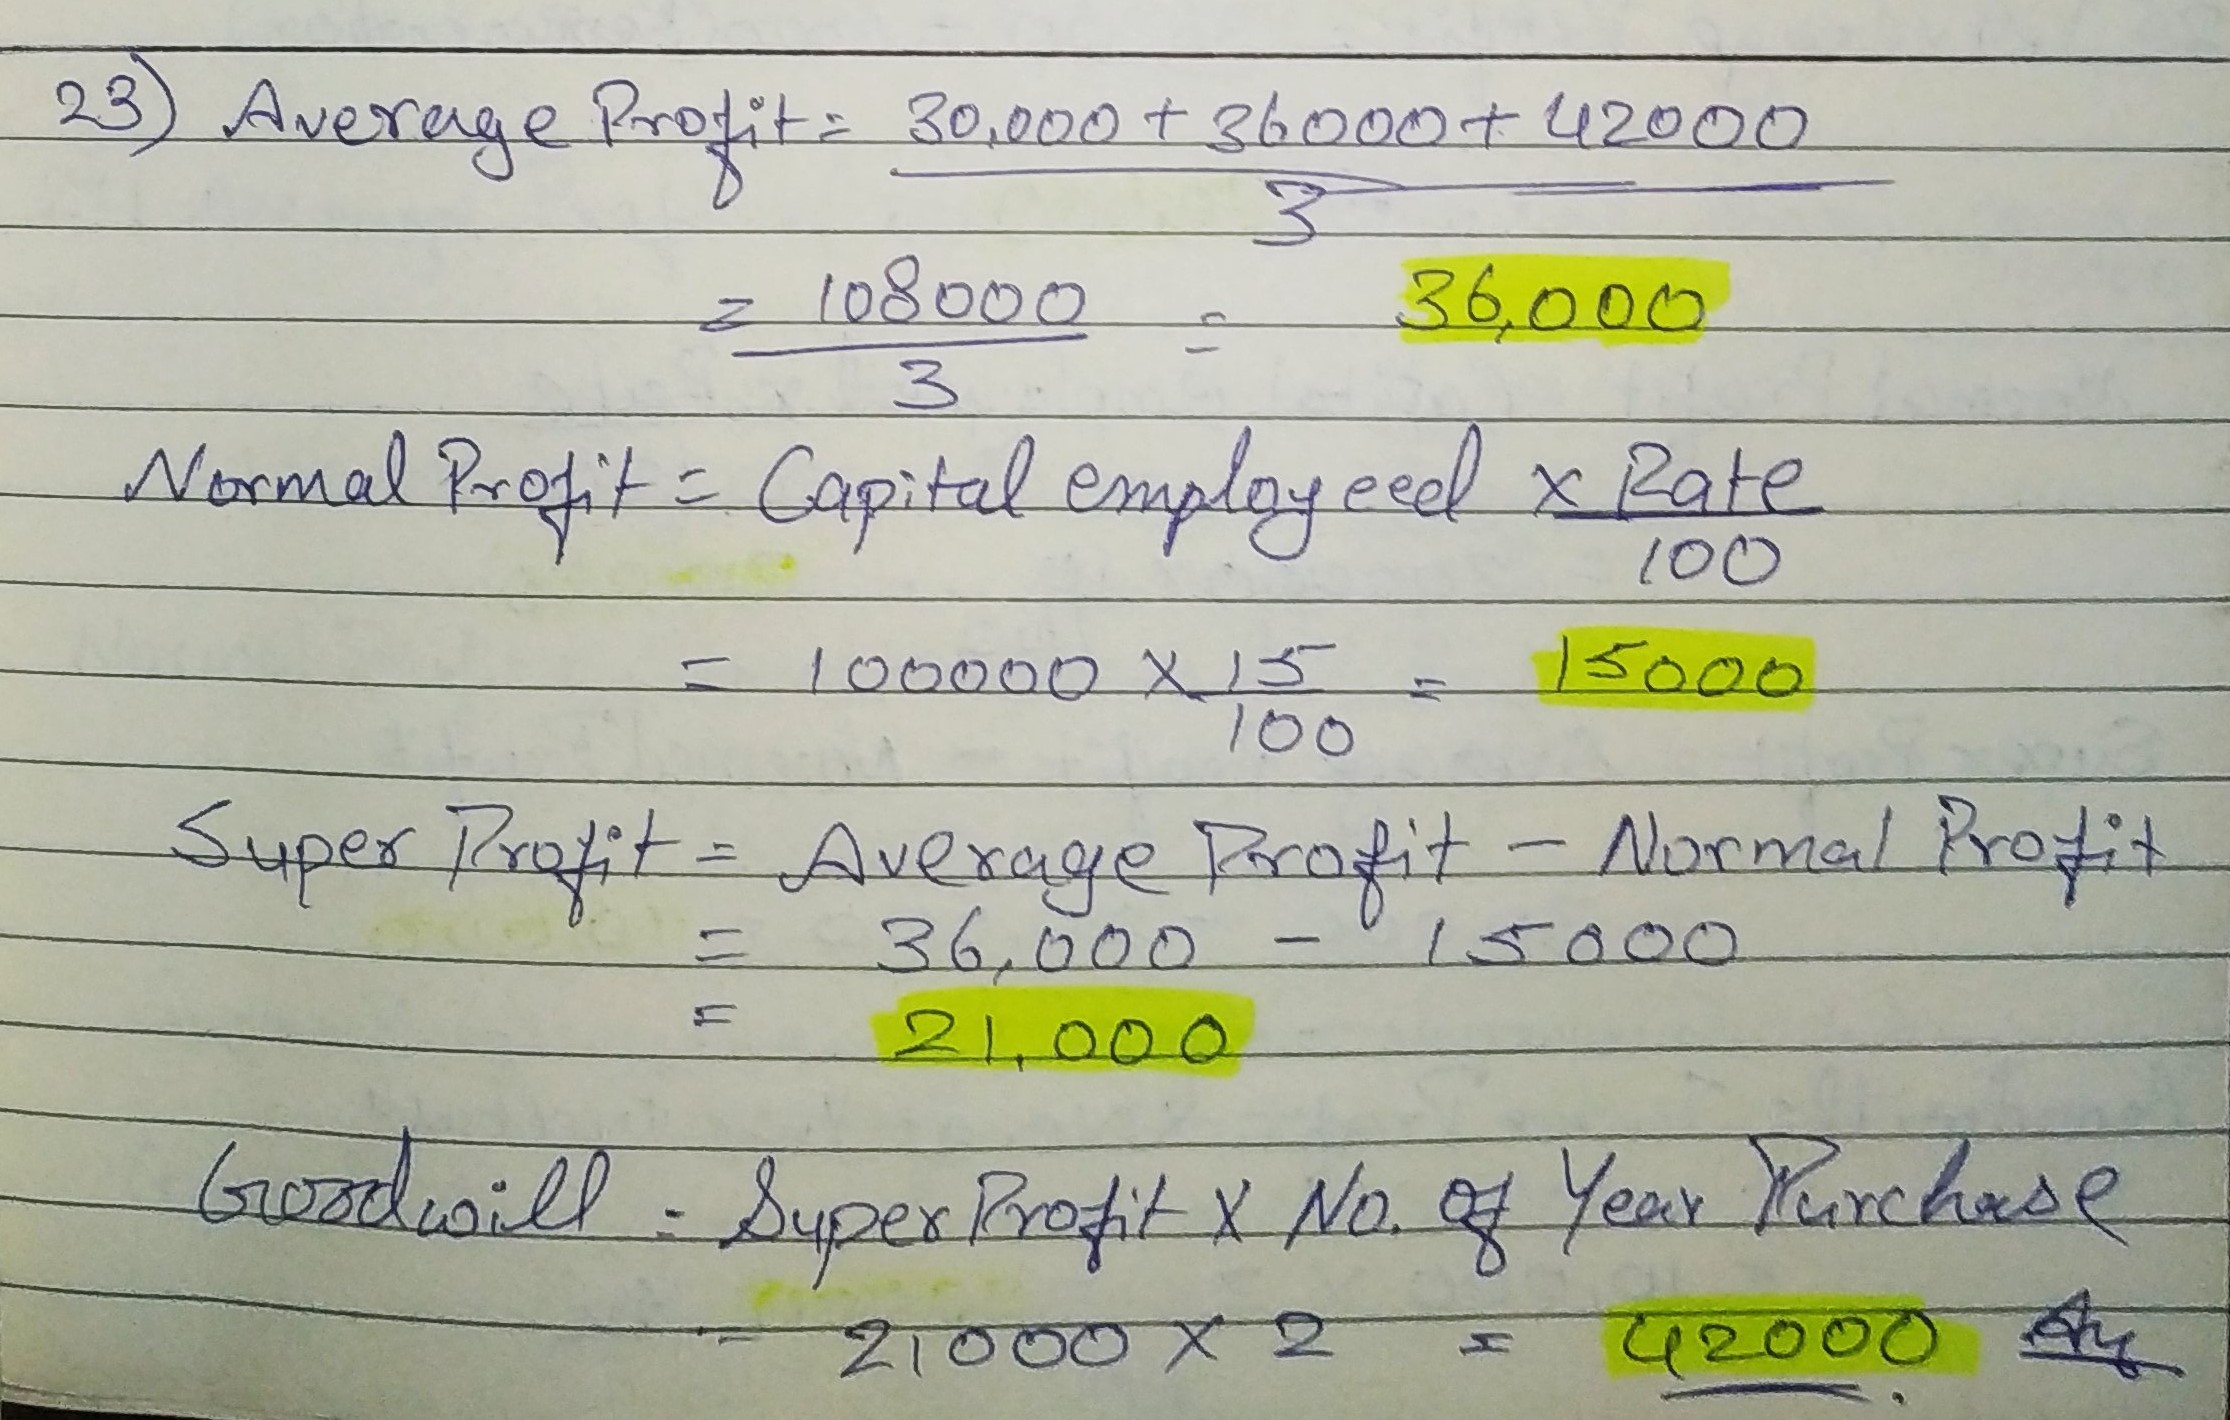 23) Average Profit = 30,000 + 36000 + 42000
3
= 108000 = 36,000
3
Normal Profit = Capital employeed x Rate
100
= 100000 x 15 = 15000
100
Super Profit = Average Profit - Normal Profit
= 36,000 - 15000
= 21,000
Goodwill = Super Profit x No. of Year Purchase
= 21000 x 2 = 42000 Ans